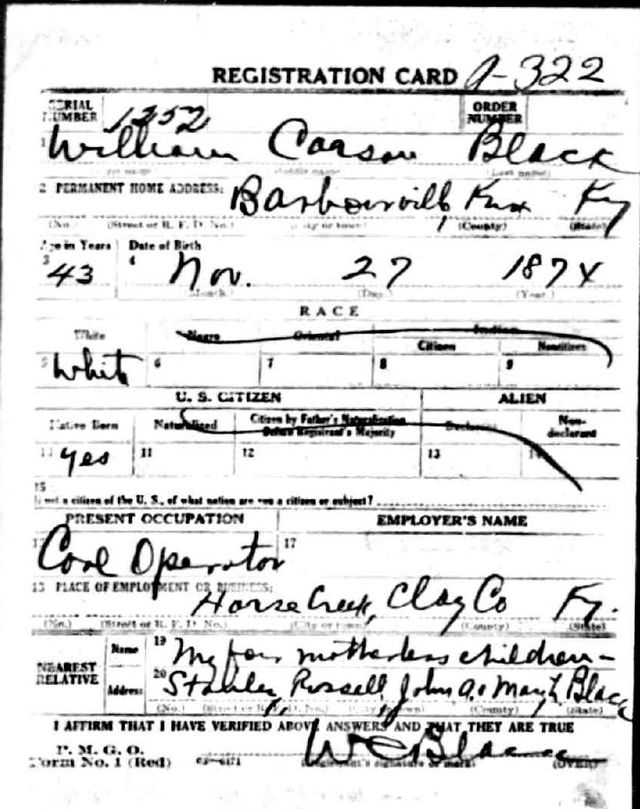 REGISTRATION CARD A-322
SERIAL NUMBER 1252 ORDER NUMBER
1 William Carson Black
(Last name)
2 PERMANENT HOME ADDRESS: Barbourville, Knox Ky
(No.) (Street or R. F. D. No.) (City or town) (County) (State)
Age in Years Date of Birth
3 43 4 Nov. 27 1874
(Month.) (Day.) (Year.)
RACE
White Negro Oriental Indian
Citizen Noncitizen
5 White 6 7 8 9
U. S. CITIZEN ALIEN
Native Born Naturalized Citizen by Father's Naturalization Before Registrant's Majority Declarant Non-declarant
10 Yes 11 12 13 14
15
If not a citizen of the U. S., of what nation are you a citizen or subject?
PRESENT OCCUPATION EMPLOYER'S NAME
Coal Operator 17
PLACE OF EMPLOYMENT OR BUSINESS:
Horse Creek, Clay Co Ky.
(No.) (Street or R. F. D. No.) (City or town) (County) (State)
NEAREST RELATIVE Name 19 My four motherless children -
Address 20 Stanley, Russell, John A. & Mary L Black
(No.) (Street or R. F. D. No.) (City or town) (County) (State)
I AFFIRM THAT I HAVE VERIFIED ABOVE ANSWERS AND THAT THEY ARE TRUE
P. M. G. O.
Form No. 1 (Red) W C Black
(Registrant's signature or mark) (OVER)